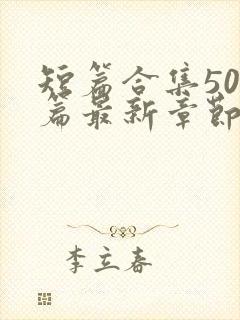 短篇合集50
篇最新章节
李立春